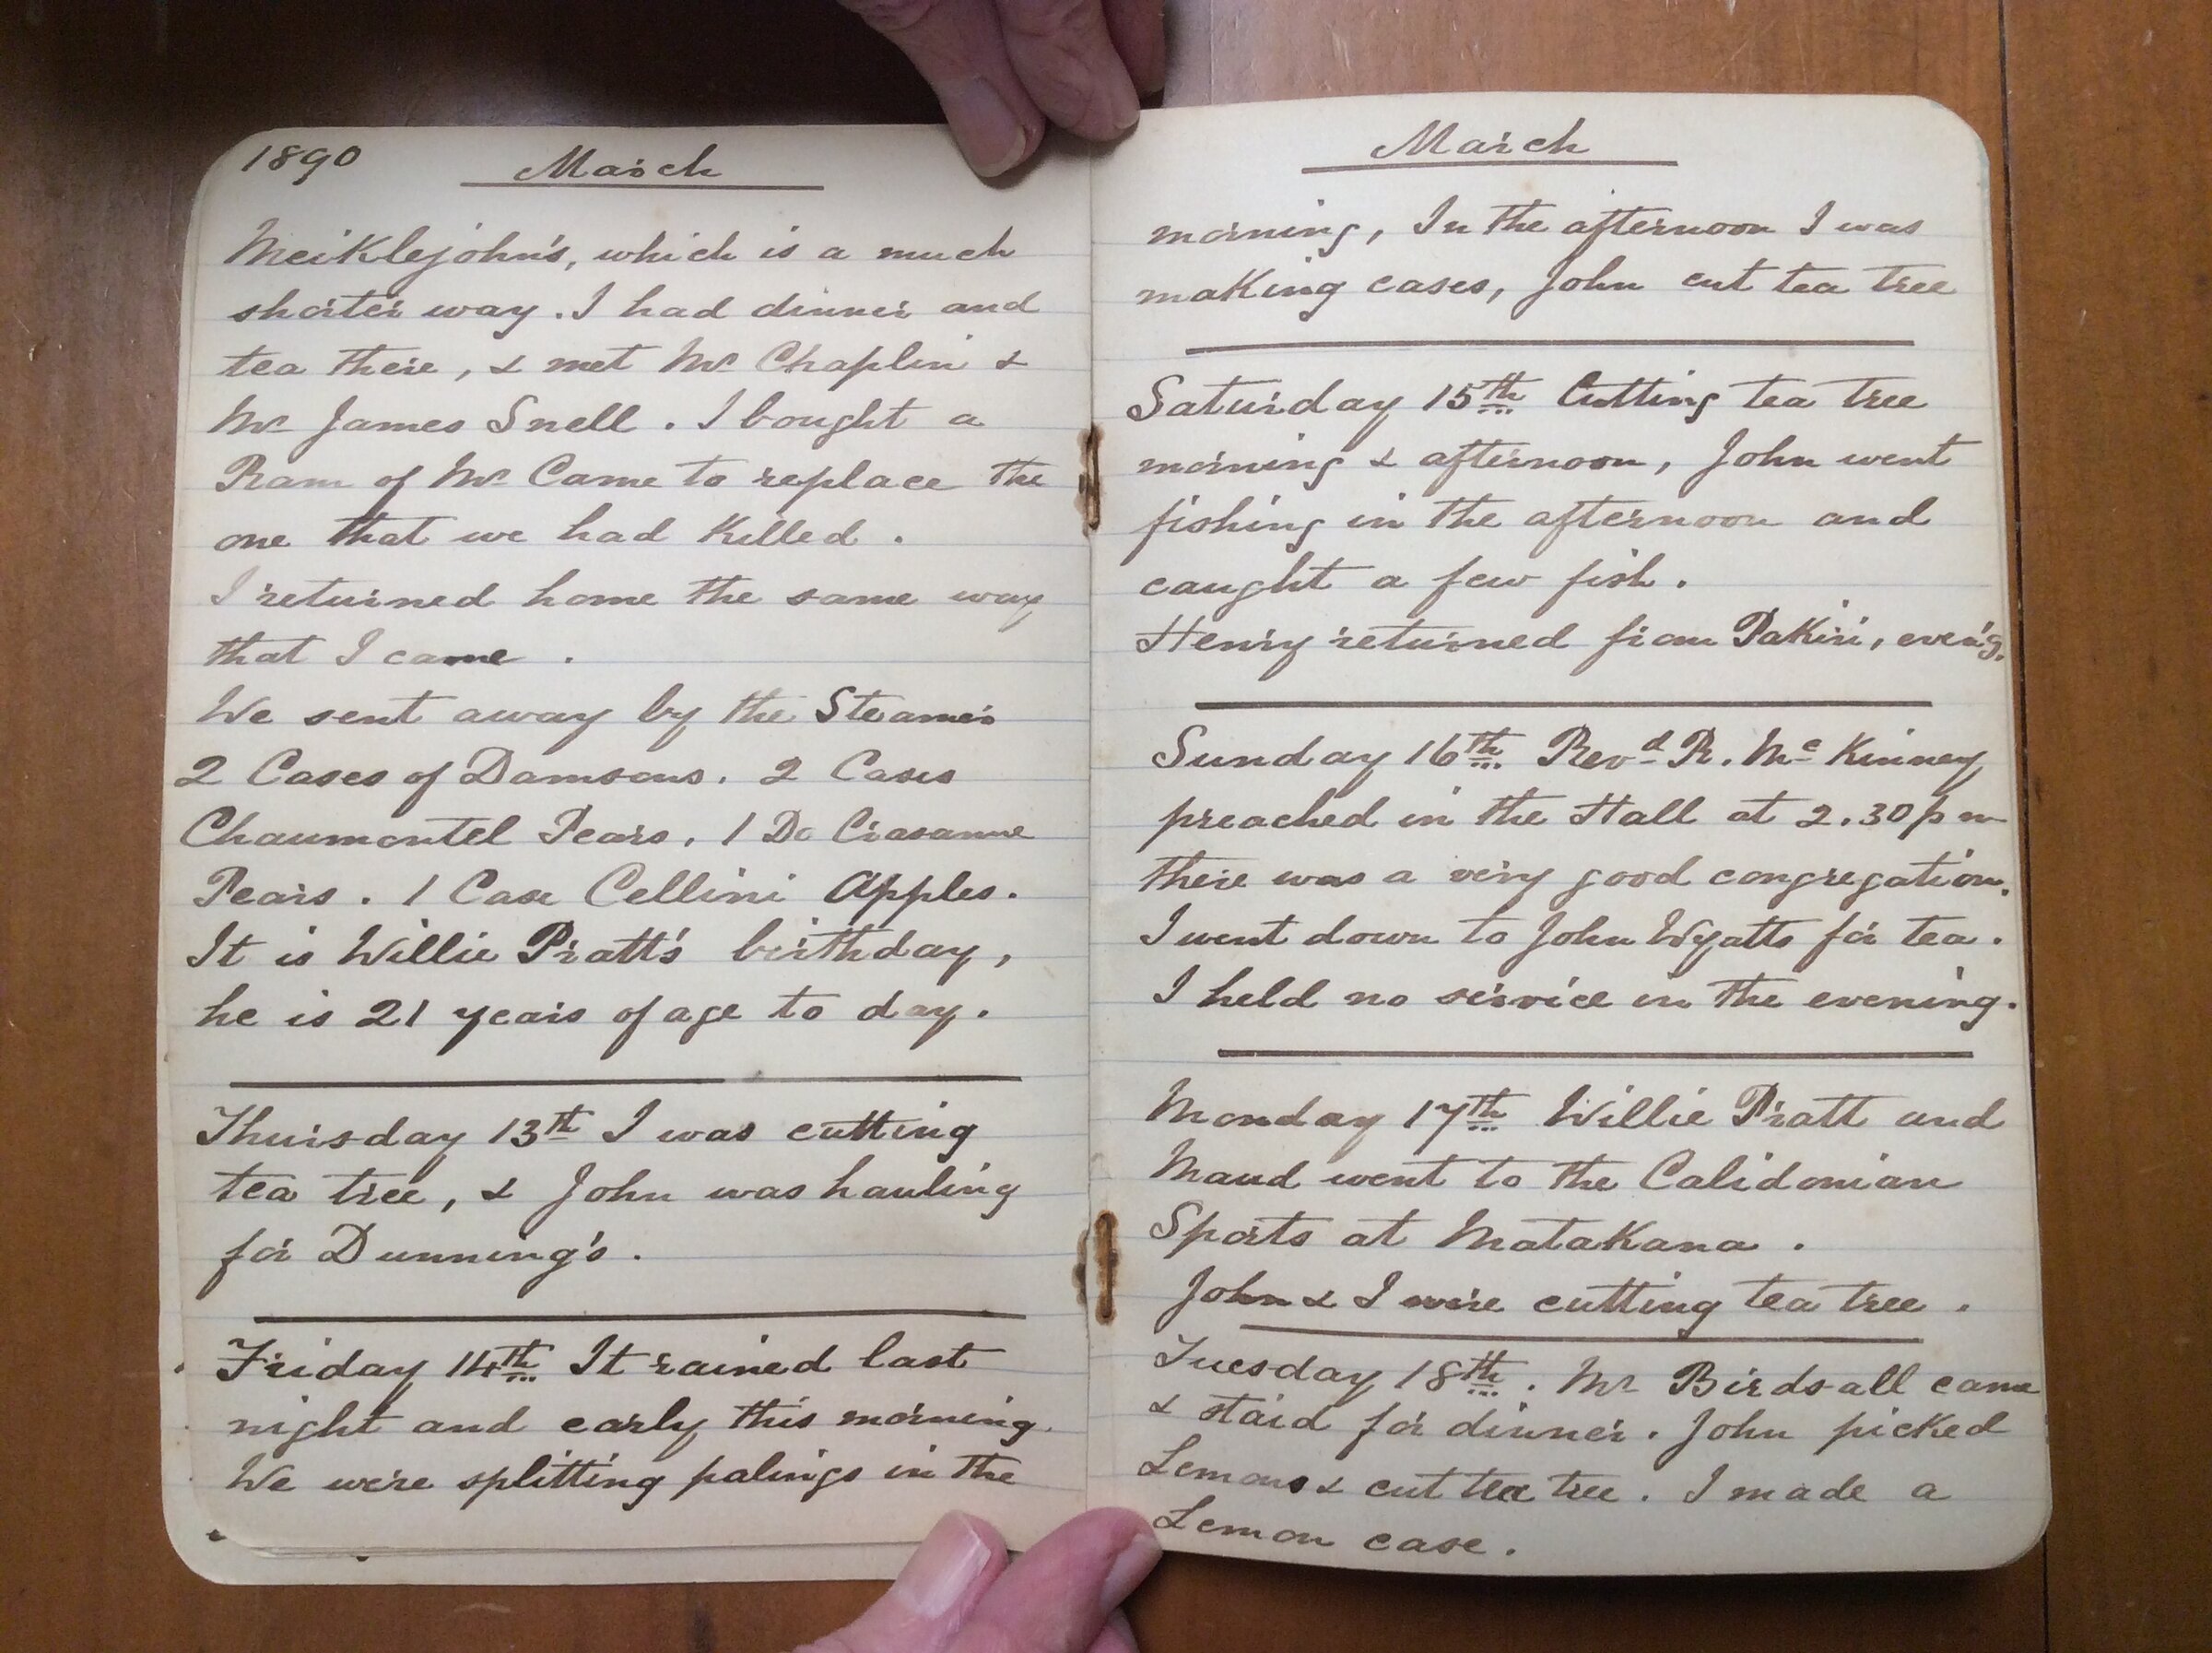 1890
March
Meiklejohn's, which is a much
shorter way. I had dinner and
tea there, & met Mr Chaplin &
Mr James Snell. I bought a
Ram of Mr Came to replace the
one that we had killed.
I returned home the same way
that I came.
We sent away by the Steamer
2 Cases of Damsons. 2 Cases
Chaumontel Pears. 1 Do Crasanne
Pears. 1 Case Cellini Apples.
It is Willie Pratt's birthday,
he is 21 years of age to day.
Thursday 13th I was cutting
tea tree, & John was hauling
for Dunning's.
Friday 14th. It rained last
night and early this morning.
We were splitting palings in the
March
morning, In the afternoon I was
making cases, John cut tea tree
Saturday 15th Cutting tea tree
morning & afternoon, John went
fishing in the afternoon and
caught a few fish.
Henry returned from Pakiri, even'g.
Sunday 16th. Revd R. Mc Kinney
preached in the Hall at 2.30 p m
there was a very good congregation.
I went down to John Wyatts for tea.
I held no service in the evening.
Monday 17th Willie Pratt and
Maud went to the Calidonian
Sports at Matakana.
John & I were cutting tea tree.
Tuesday 18th. Mr Birdsall came
& staid for dinner. John picked
Lemons & cut tea tree. I made a
Lemon case.